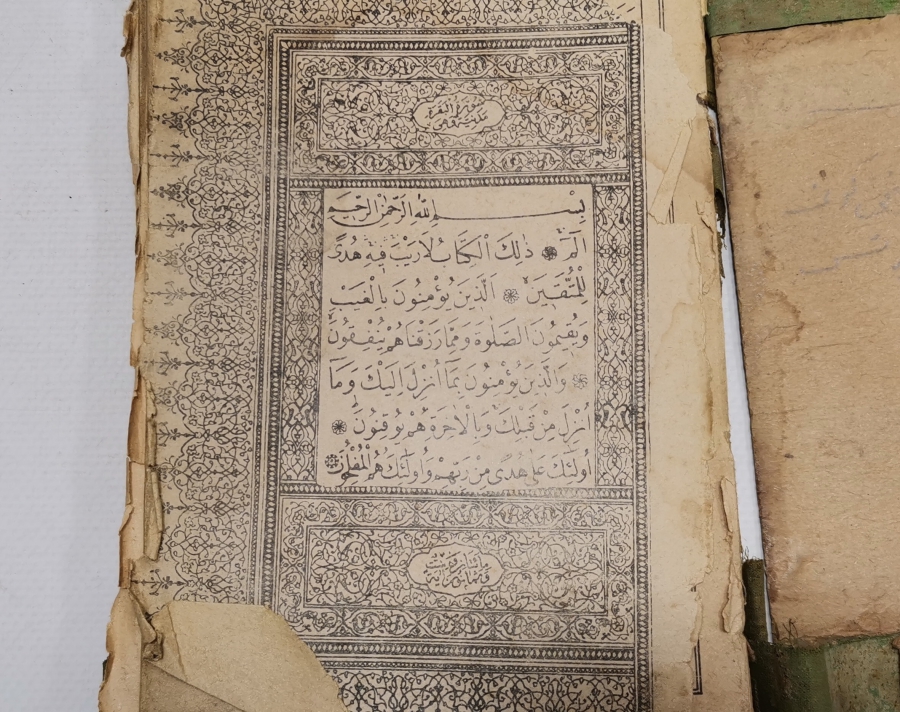 سورة البقرة
بِسْمِ اللّٰهِ الرَّحْمٰنِ الرَّحِيمِ
الٓمٓ ۞ ذٰلِكَ الْكِتَابُ لَا رَيْبَ فِيهِ هُدًى
لِلْمُتَّقِينَ ۞ اَلَّذِينَ يُؤْمِنُونَ بِالْغَيْبِ
وَيُقِيمُونَ الصَّلٰوةَ وَمِمَّا رَزَقْنَاهُمْ يُنْفِقُونَ
۞ وَالَّذِينَ يُؤْمِنُونَ بِمَٓا اُنْزِلَ اِلَيْكَ وَمَٓا
اُنْزِلَ مِنْ قَبْلِكَ وَبِالْاٰخِرَةِ هُمْ يُوقِنُونَ ۞
اُولٰٓئِكَ عَلٰى هُدًى مِنْ رَبِّهِمْ وَاُولٰٓئِكَ هُمُ الْمُفْلِحُونَ ۞